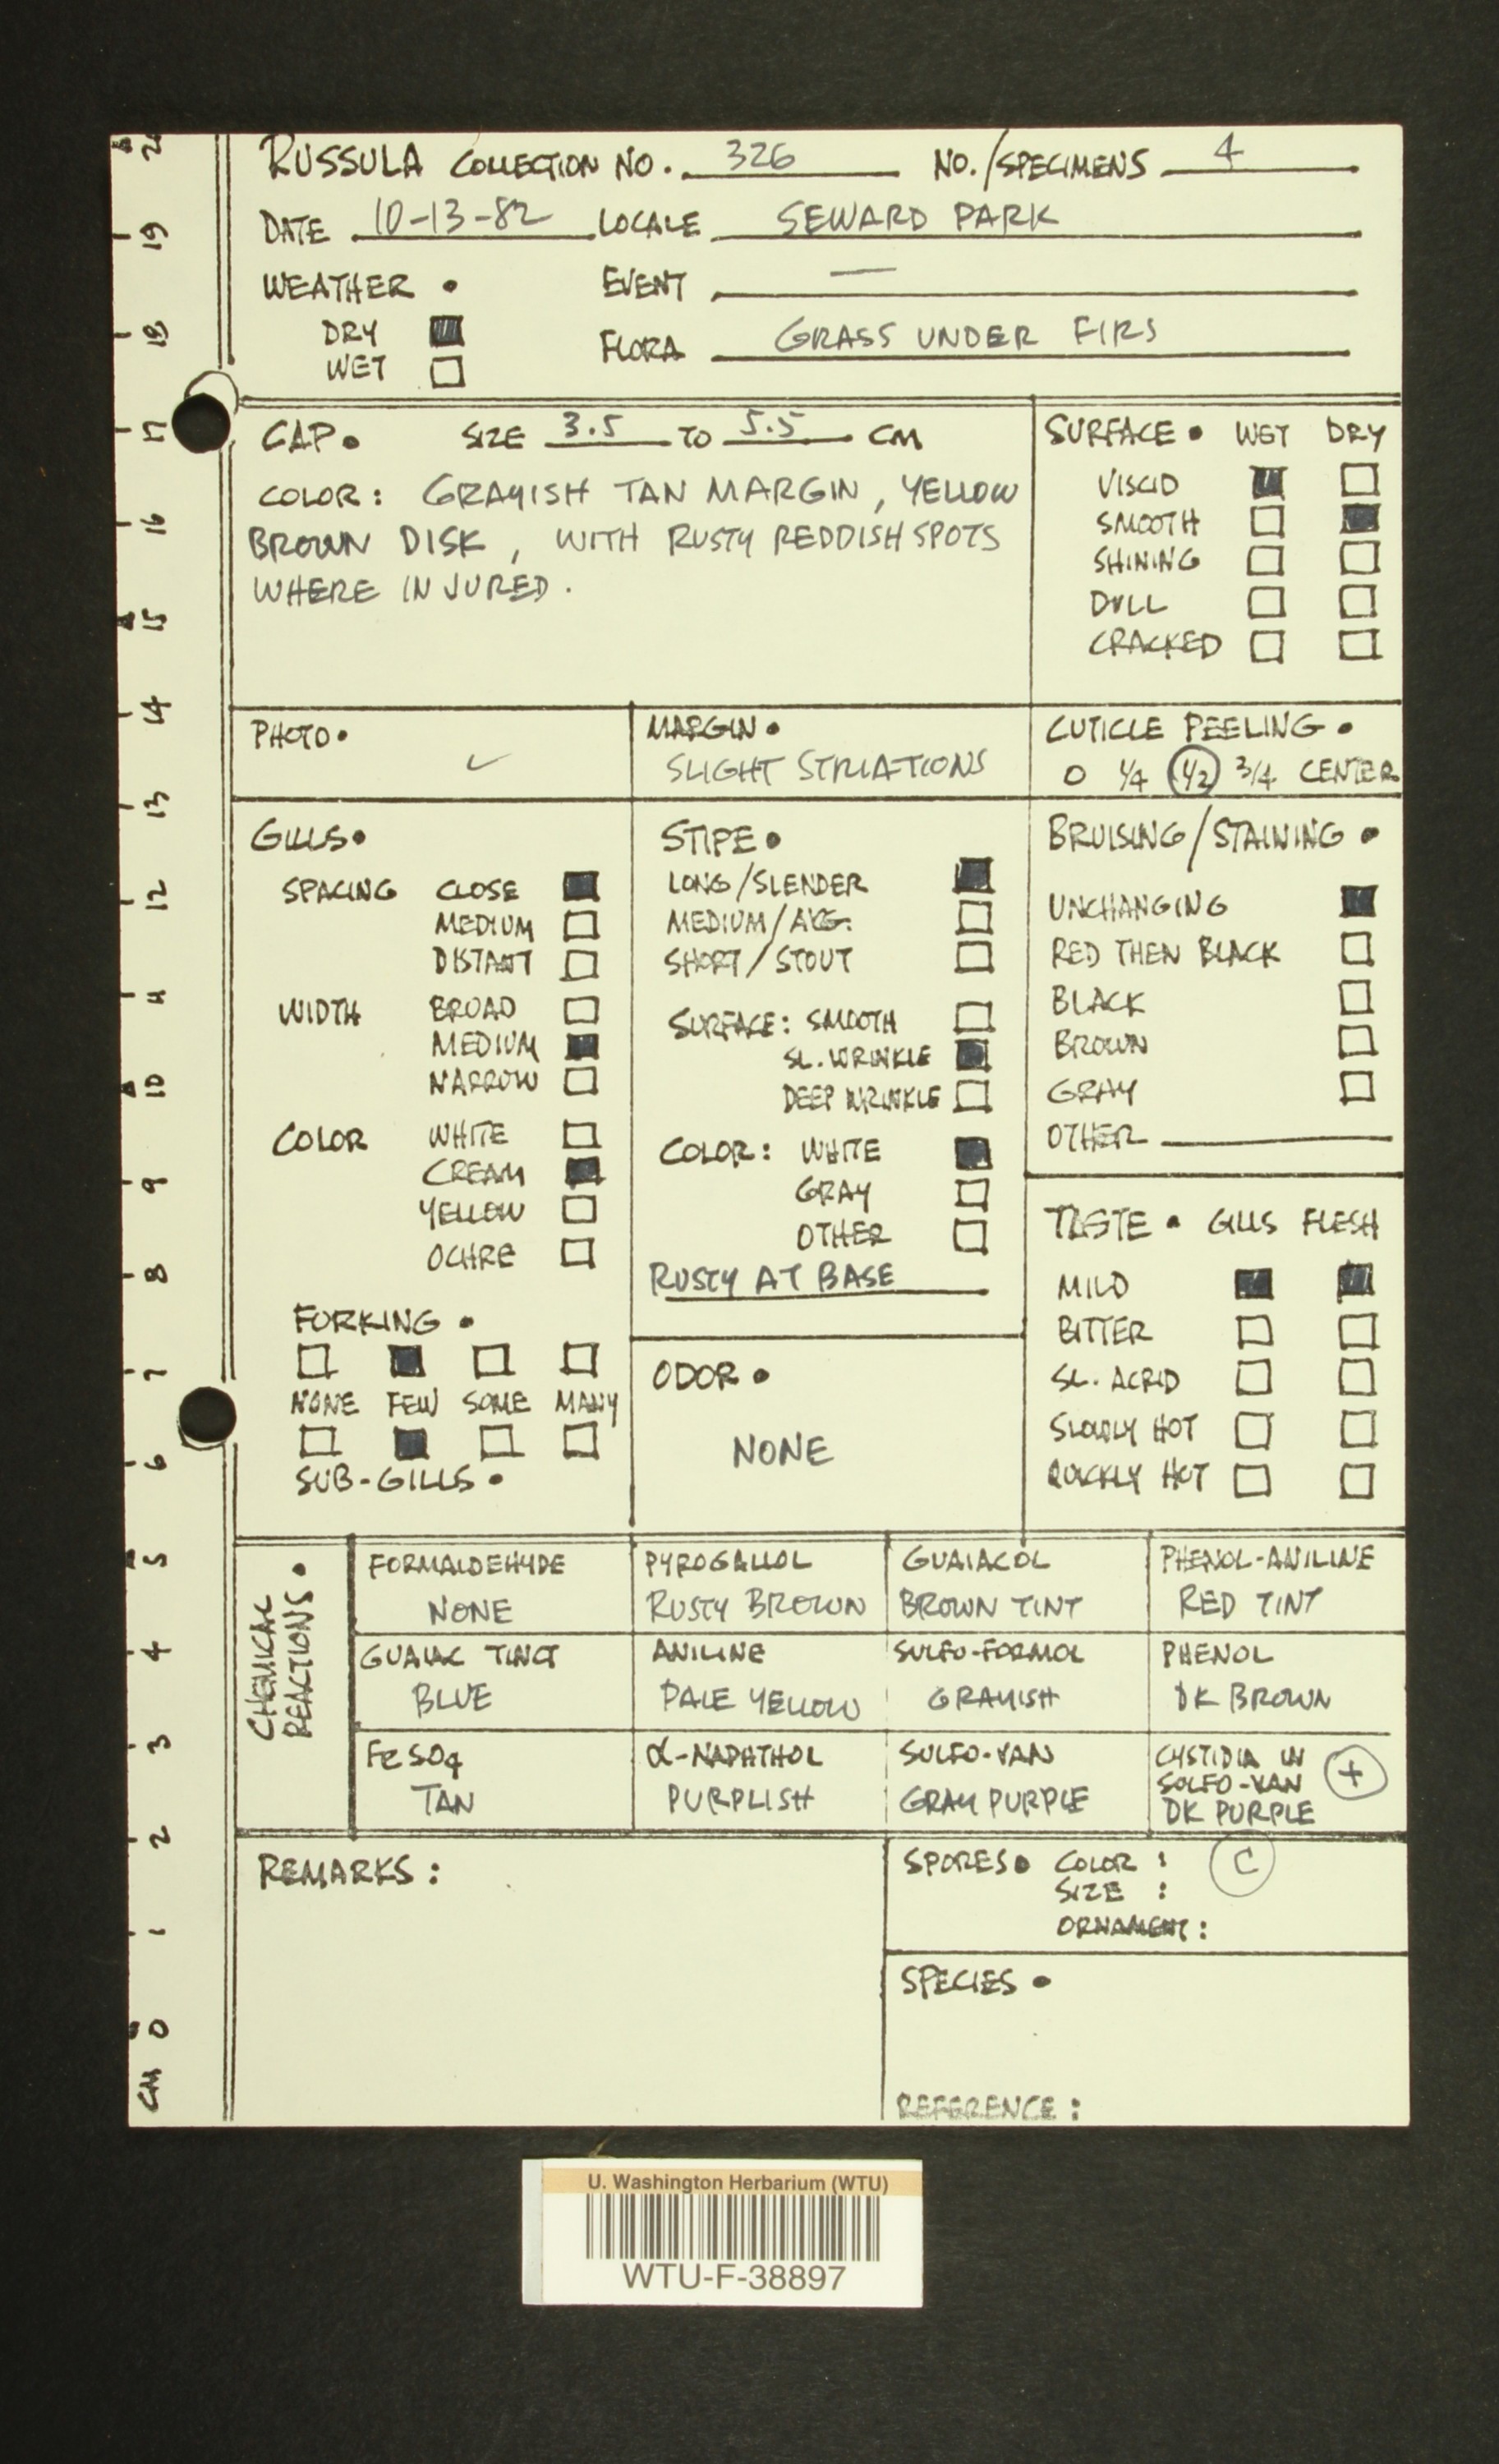 RUSSULA COLLECTION NO. 326 NO./SPECIMENS 4
DATE 10-13-82 LOCALE SEWARD PARK
WEATHER • EVENT —
DRY ■ FLORA GRASS UNDER FIRS
WET □
CAP • SIZE 3.5 TO 5.5 CM
COLOR: GRAYISH TAN MARGIN, YELLOW
BROWN DISK, WITH RUSTY REDDISH SPOTS
WHERE INJURED.
SURFACE • WET DRY
VISCID ■ □
SMOOTH □ ■
SHINING □ □
DULL □ □
CRACKED □ □
PHOTO • ✓
MARGIN •
SLIGHT STRIATIONS
CUTICLE PEELING •
0 1/4 1/2 3/4 CENTER
GILLS •
SPACING CLOSE ■
MEDIUM □
DISTANT □
WIDTH BROAD □
MEDIUM ■
NARROW □
COLOR WHITE □
CREAM ■
YELLOW □
OCHRE □
FORKING •
□ ■ □ □
NONE FEW SOME MANY
□ ■ □ □
SUB-GILLS •
STIPE •
LONG/SLENDER ■
MEDIUM/AVG. □
SHORT/STOUT □
SURFACE: SMOOTH □
SL. WRINKLE ■
DEEP WRINKLE □
COLOR: WHITE ■
GRAY □
OTHER □
RUSTY AT BASE
ODOR •
NONE
BRUISING/STAINING •
UNCHANGING ■
RED THEN BLACK □
BLACK □
BROWN □
GRAY □
OTHER
TASTE • GILLS FLESH
MILD ■ ■
BITTER □ □
SL. ACRID □ □
SLOWLY HOT □ □
QUICKLY HOT □ □
CHEMICAL
REACTIONS •
FORMALDEHYDE
NONE
PYROGALLOL
RUSTY BROWN
GUAIACOL
BROWN TINT
PHENOL-ANILINE
RED TINT
GUAIAC TINCT
BLUE
ANILINE
PALE YELLOW
SULFO-FORMOL
GRAYISH
PHENOL
DK BROWN
FeSO4
TAN
α-NAPHTHOL
PURPLISH
SULFO-VAN
GRAY PURPLE
CYSTIDIA IN
SULFO-VAN +
DK PURPLE
REMARKS:
SPORES • COLOR : C
SIZE :
ORNAMENT:
SPECIES •
REFERENCE:
CM 0 1 2 3 4 5 6 7 8 9 10 11 12 13 14 15 16 17 18 19 20
U. Washington Herbarium (WTU)
WTU-F-38897